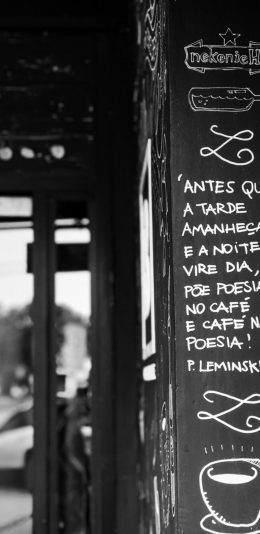 nekenieH
'ANTES QU
A TARDE
AMANHEÇA
E A NOITE
VIRE DIA,
PÕE POESIA
NO CAFÉ
E CAFÉ N
POESIA!
P. LEMINSK